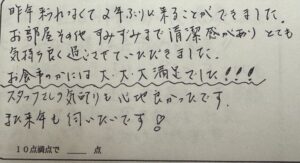 昨年来れなくて2年ぶりに来ることができました。
お部屋その他すみずみまで清潔感がありとても
気持ち良く過ごさせていただきました。
お食事のかにには大・大・大満足でした!!!
スタッフさんの気配りも心地良かったです。
また来年も伺いたいです!
10点満点で 点